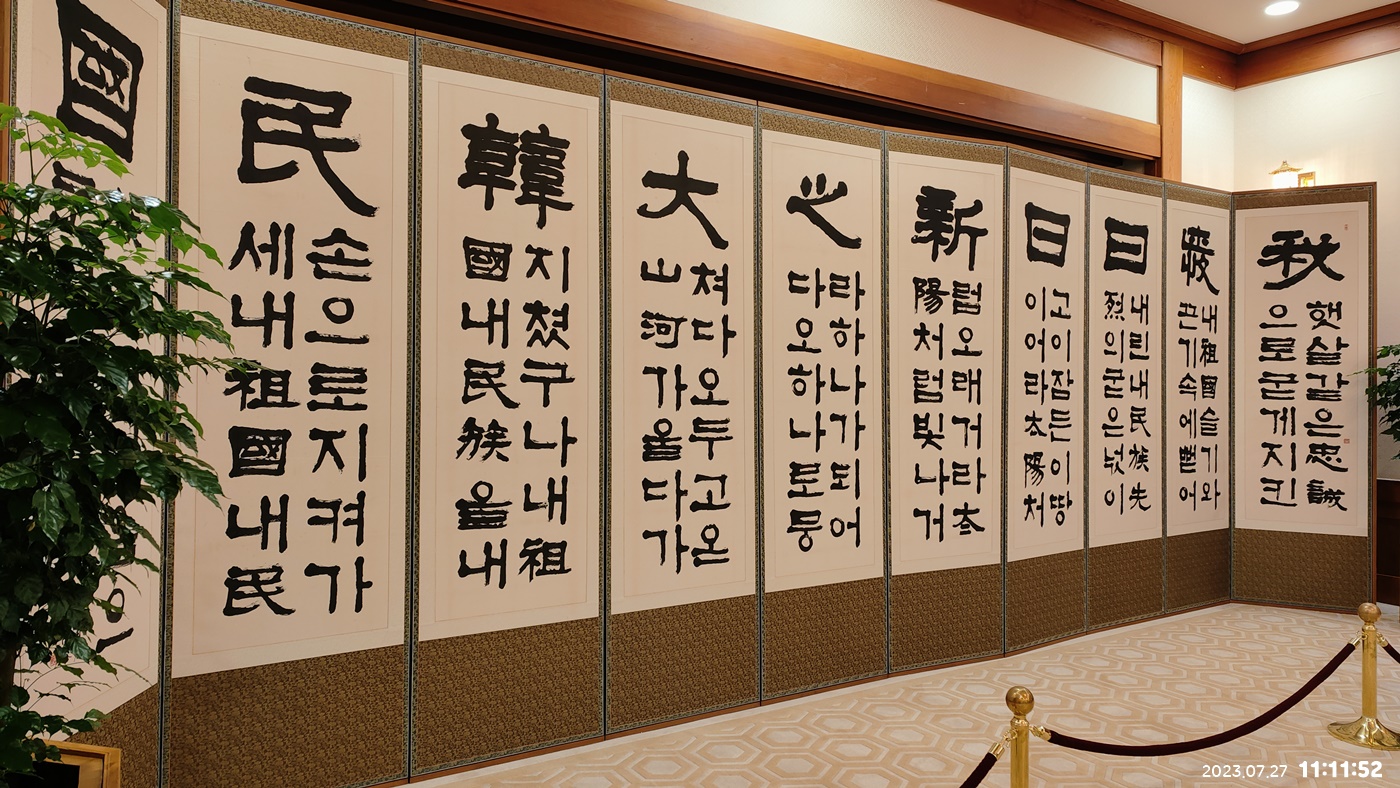 秋
햇살같은忠誠
으로굳게지킨
내祖國슬기와
끈기속에뻗어
日
내린내民族先
烈의굳은넋이
日
고이잠든이땅
이어라太陽처
新
럼오래거라太
陽처럼빛나거
心
라하나가되어
다오하나로뭉
大
쳐다오두고온
山河가올다가
韓
지쳤구나내祖
國내民族을내
民
손으로지켜가
세내祖國내民
國
2023.07.27 11:11:52